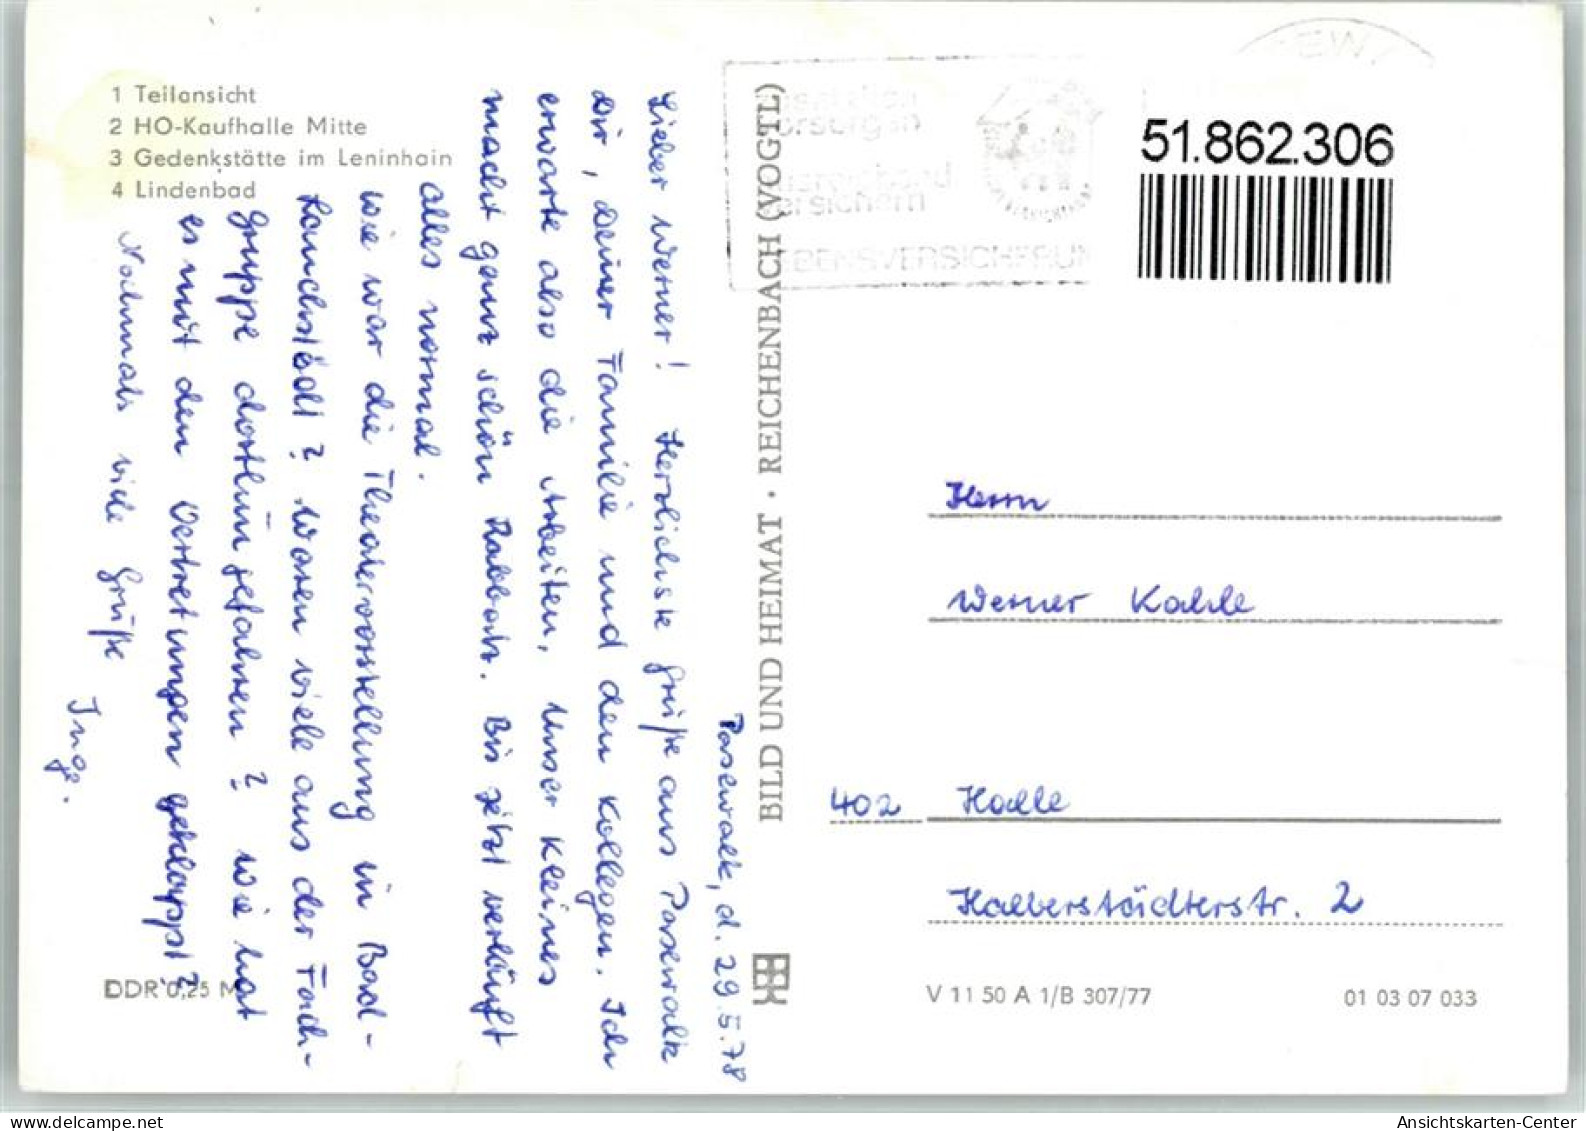 1 Teilansicht
2 HO-Kaufhalle Mitte
3 Gedenkstätte im Leninhain
4 Lindenbad
Pasewalk, d. 29.5.78
Lieber Werner! Herzlichste Grüße aus Pasewalk
Dir, Deiner Familie und den Kollegen. Ich
erwarte also die Arbeiten. Unser kleines
macht ganz schön Rabbatz. Bis jetzt verläuft
alles normal.
Wie war die Theatervorstellung in Bad-
Lauchstädt? Waren viele aus der Fach-
gruppe dorthin gefahren? Wie hat
es mit den Vertretungen geklappt?
Nochmals viele Grüße
Inge.
DDR 0,25 M
BILD UND HEIMAT · REICHENBACH (VOGTL)
versichern
LEBENSVERSICHERUN
51.862.306
Herrn
Werner Kahle
402 Halle
Halberstädterstr. 2
V 11 50 A 1/B 307/77
01 03 07 033
Ansichtskarten-Center